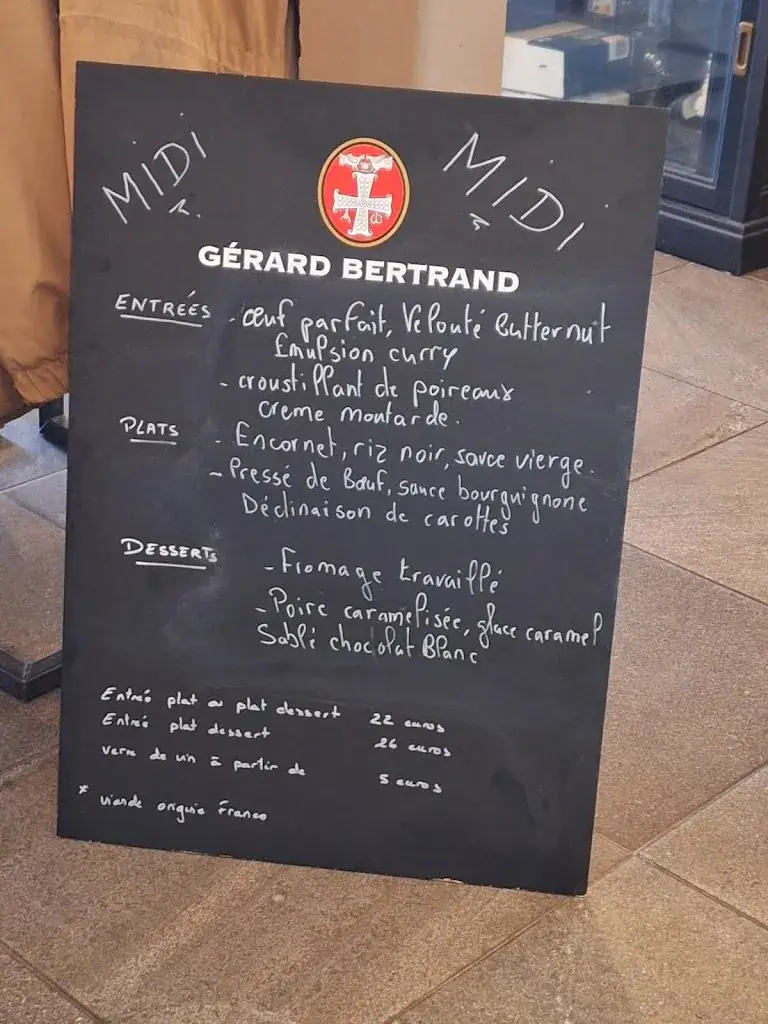 MIDI MIDI
GÉRARD BERTRAND
ENTRÉES - œuf parfait, Velouté Butternut
Emulsion curry
- croustillant de poireaux
creme moutarde.
PLATS - Encornet, riz noir, sauce vierge.
- Pressé de Bœuf, sauce bourguignone
Déclinaison de carottes
DESSERTS
- Fromage travaillé
- Poire caramelisée, glace caramel
Sablé chocolat Blanc
Entrée plat ou plat dessert 22 euros
Entrée plat dessert 26 euros
verre de vin à partir de 5 euros
* viande origine France